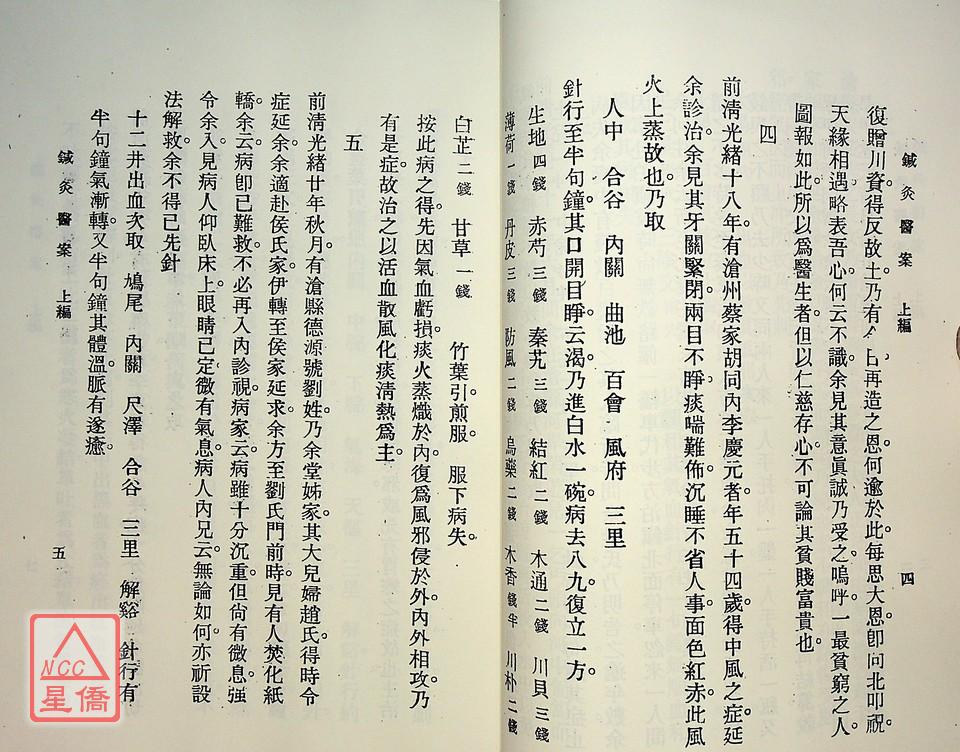 鍼灸醫案　上編　四
復贈川資。得反故土。乃有今日再造之恩。何逾於此。每思大恩。卽向北叩祝
天緣相遇。略表吾心。何云不識。余見其意眞誠。乃受之。嗚呼。一最貧窮之人
圖報如此。所以爲醫生者。但以仁慈存心。不可論其貧賤富貴也。
四
前淸光緒十八年。有滄州蔡家胡同內李慶元者。年五十四歲。得中風之症。延
余診治。余見其牙關緊閉。兩目不睜。痰喘難佈。沉睡不省人事。面色紅赤。此風
火上蒸故也。乃取
人中　合谷　內關　曲池　百會　風府　三里
針行至半句鐘。其口開目睜。云渴。乃進白水一碗。病去八九。復立一方。
生地四錢　赤芍三錢　秦艽三錢　結紅二錢　木通二錢　川貝三錢
薄荷一錢　丹皮三錢　防風二錢　烏藥二錢　木香錢半　川朴二錢
白芷二錢　甘草一錢　竹葉引煎服。　服下病失。
按此病之得。先因氣血虧損。痰火蒸熾於內。復爲風邪侵於外。內外相攻。乃
有是症。故治之以活血散風化痰淸熱爲主。
五
前淸光緒廿年秋月。有滄縣德源號劉姓。乃余堂姊家。其大兒婦趙氏。得時令
症。延余。余適赴侯氏家。伊轉至侯家延求。余方至劉氏門前。時見有人焚化紙
轎。余云病卽已難救。不必再入內診視。病家云。病雖十分沉重。但尙有微息。强
令余入見。病人仰臥床上。眼睛已定。微有氣息。病人內兄云。無論如何。亦祈設
法解救。余不得已先針
十二井出血。次取　鳩尾　內關　尺澤　合谷　三里　解谿　針行有
半句鐘。氣漸轉。又半句鐘。其體溫。脈有。遂癒。
鍼灸醫案　上編　五
NCC
星僑